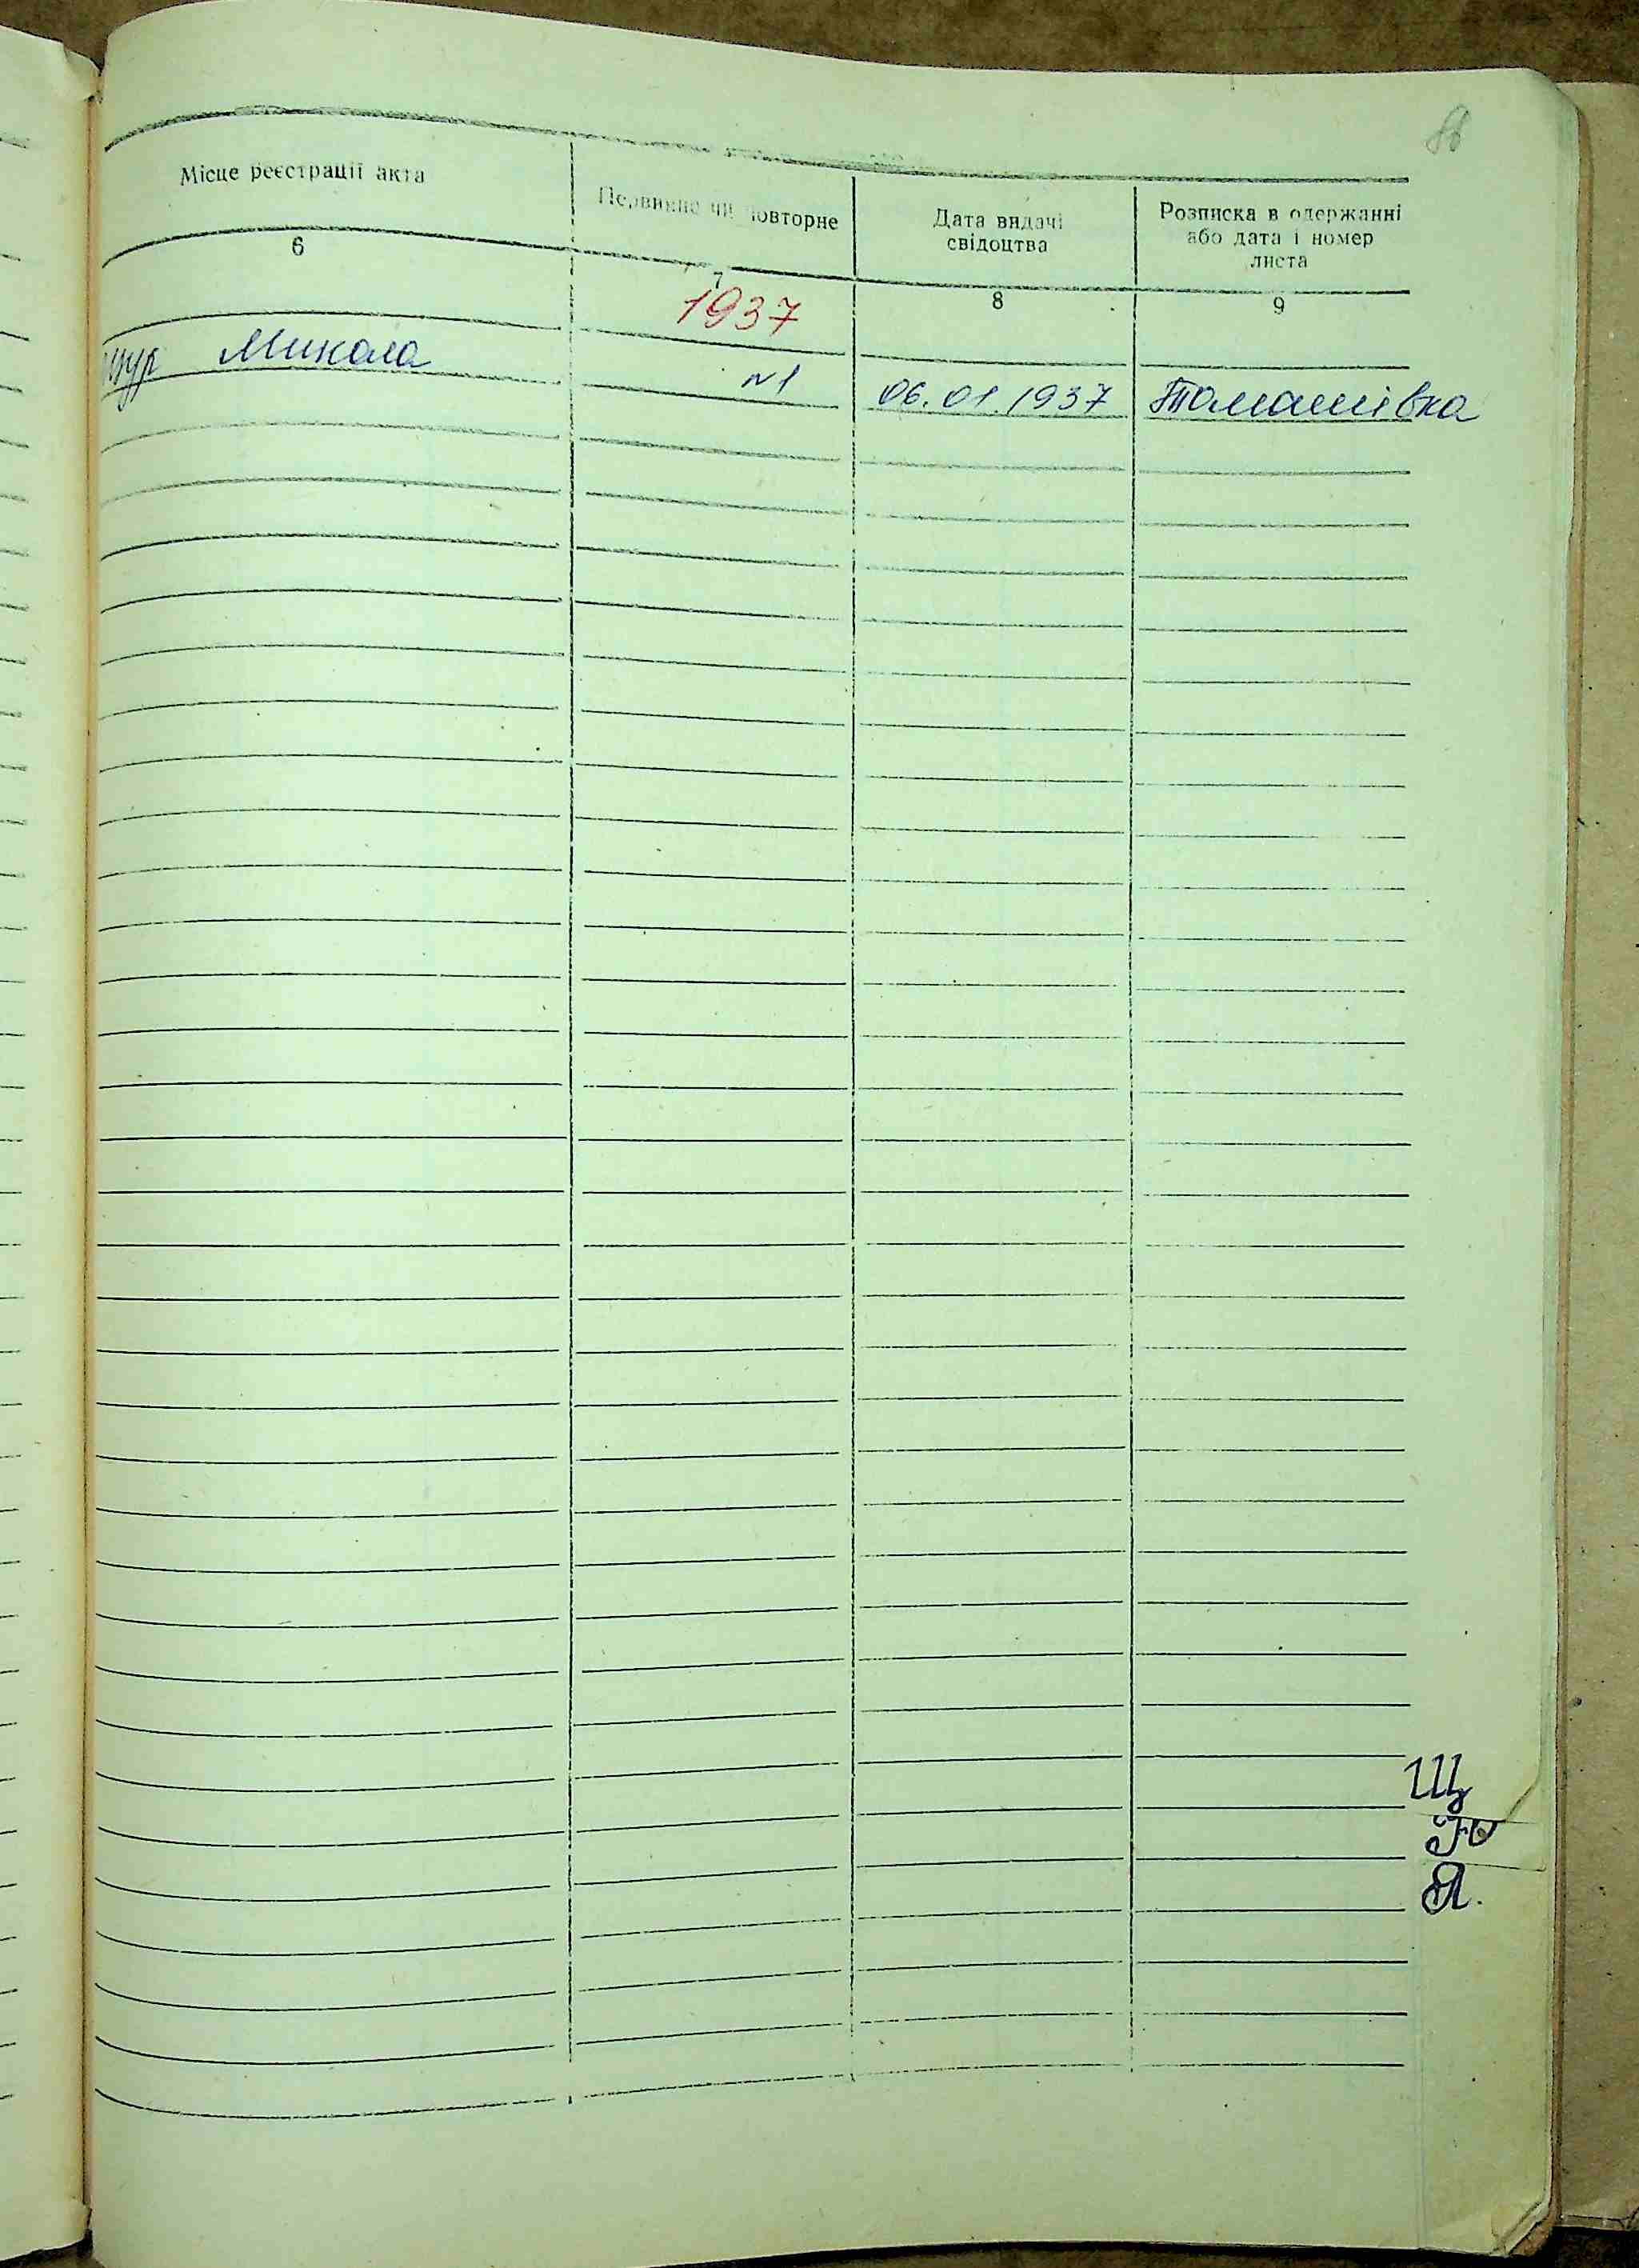 Місце реєстрації акта
Первинне чи повторне
Дата видачі
свідоцтва
Розписка в одержанні
або дата і номер
листа
6
7
8
9
1937
Микола
№1
06.01.1937
Томашівка
Щ
Ю
Я.